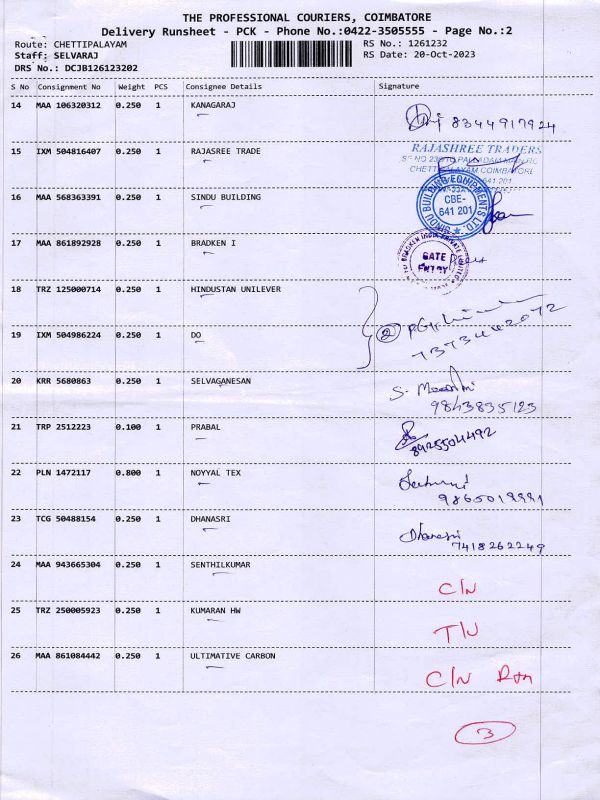 THE PROFESSIONAL COURIERS, COIMBATORE
Delivery Runsheet - PCK - Phone No.:0422-3505555 - Page No.:2
Route: CHETTIPALAYAM RS No.: 1261232
Staff: SELVARAJ RS Date: 20-Oct-2023
DRS No.: DCJB126123202
S No Consignment No Weight PCS Consignee Details Signature
14 MAA 106320312 0.250 1 KANAGARAJ 8344917924
15 IXM 504816407 0.250 1 RAJASREE TRADE RAJASHREE TRADERS
CHETTIPALAYAM COIMBATORE
641 201
16 MAA 568363391 0.250 1 SINDU BUILDING SINDU BUILDING EQUIPMENTS LTD. CBE- 641 201
17 MAA 861892928 0.250 1 BRADKEN I BRADKEN INDIA PRIVATE LIMITED GATE ENTRY
18 TRZ 125000714 0.250 1 HINDUSTAN UNILEVER
19 IXM 504986224 0.250 1 DO 2
20 KRR 5680863 0.250 1 SELVAGANESAN S.
9843835123
21 TRP 2512223 0.100 1 PRABAL 8925504492
22 PLN 1472117 0.800 1 NOYYAL TEX
23 TCG 50488154 0.250 1 DHANASRI Dhanasri
7418262249
24 MAA 943665304 0.250 1 SENTHILKUMAR C/N
25 TRZ 250005923 0.250 1 KUMARAN HW
26 MAA 861084442 0.250 1 ULTIMATIVE CARBON C/N
3